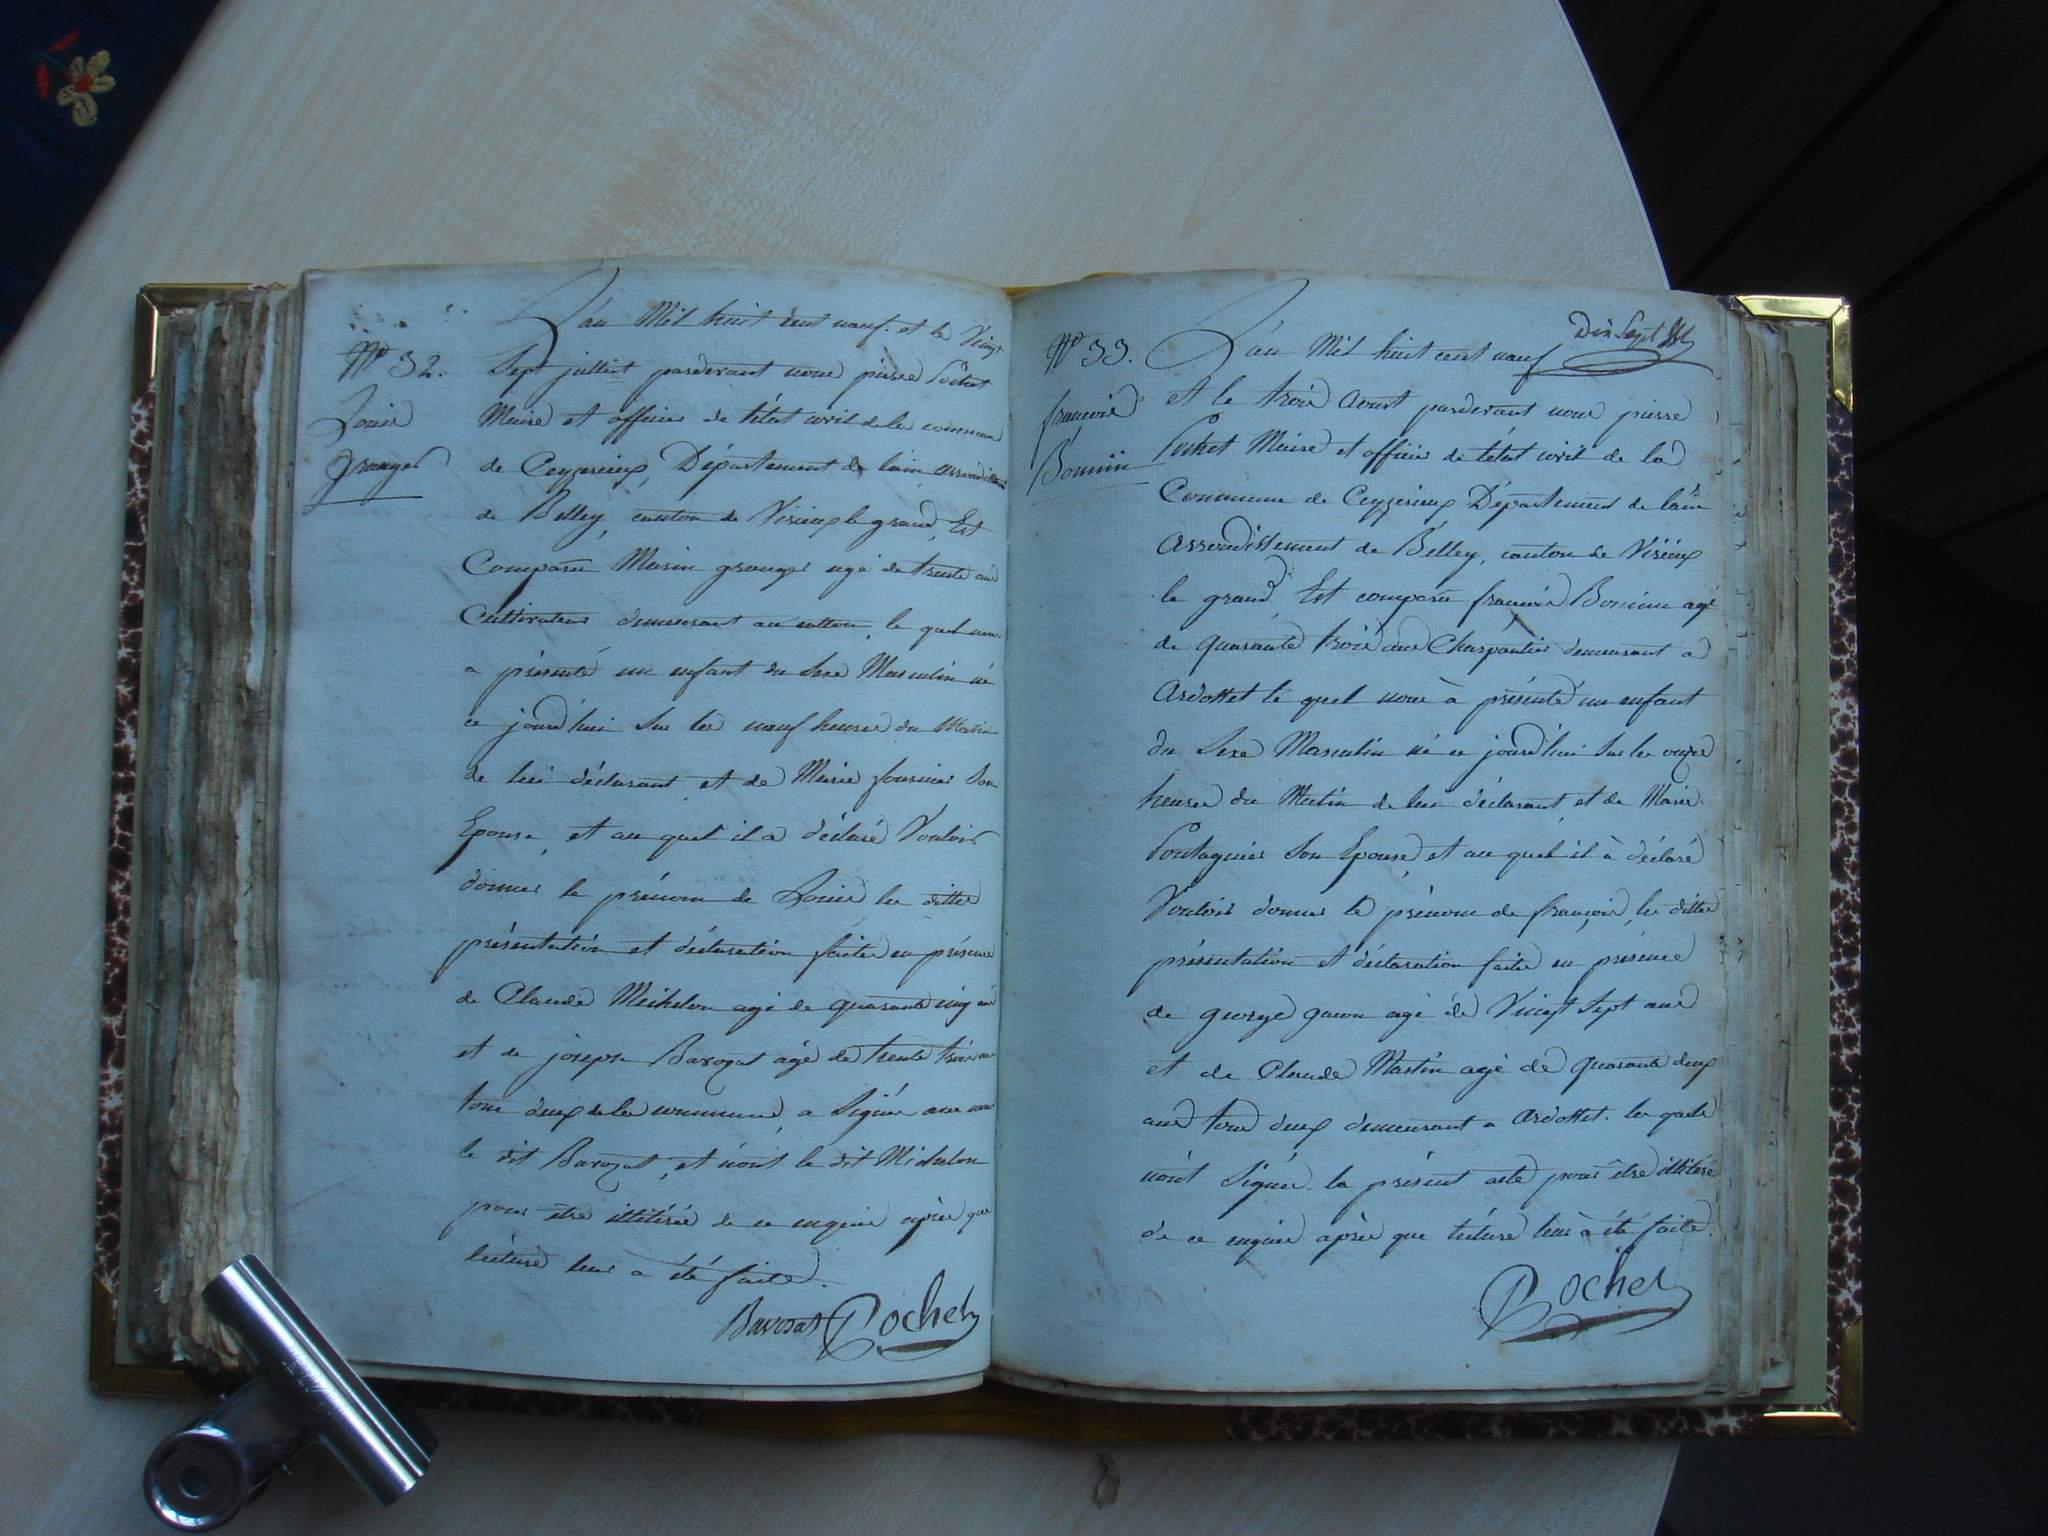 L'an Mil huit cent neuf. et le Vingt
N° 32. Sept juillet pardevant nous pierre Pochet
Louis Maire et officier de l'état civil de la commune
granger de Ceyzerieux, Département de lain arrondissement
de Belley, canton de Virieux le grand, Est
Comparu Marin granger agé de trente ans
Cultivateur demeurant au, le quel nous
a présenté un enfant du Sexe Masculin né
ce jourd'hui Sur les neuf heures du Matin
de lui déclarant et de Marie fournier Son
Epouse, et au quel il a déclaré Vouloir
donner le prénom de Louis les dittes
présentation et déclaration faites en présence
de Claude Michelon agé de quarante cinq ans
et de joseph Barozat agé de trente trois ans
tous deux de la commune, a Signés avec nous
le dit Barozat, et nont le dit Michelon
pour être illitérés de ce enquis après que
lécture leur a été faite.
Barozat Pochet
Dix Sept
N° 33. L'an Mil huit cent neuf
françois et le trois Aoust pardevant nous pierre
Bonnin Pochet Maire et officier de l'état civil de la
Commune de Ceyzerieux Département de lain
Arrondissement de Belley, canton de Virieux
le grand, Est comparu françois Bonnin agé
de quarante trois ans Charpentier demeurant a
Ardosset le quel nous à présenté un enfant
du Sexe Masculin né ce jourd'hui Sur les onze
heures du Matin de lui déclarant et de Marie
Pontagnier Son Epouse, et au quel il à déclaré
Vouloir donner le prénom de françois, les dittes
présentation et déclaration faites en présence
de george gacon agé de Vingt Sept ans
et de Claude Martin agé de quarante deux
ans tous deux demeurant a Ardosset. les quels
nont Signés le présent acte pour être illitérés
de ce enquis après que lécture leur à été faite.
Pochet